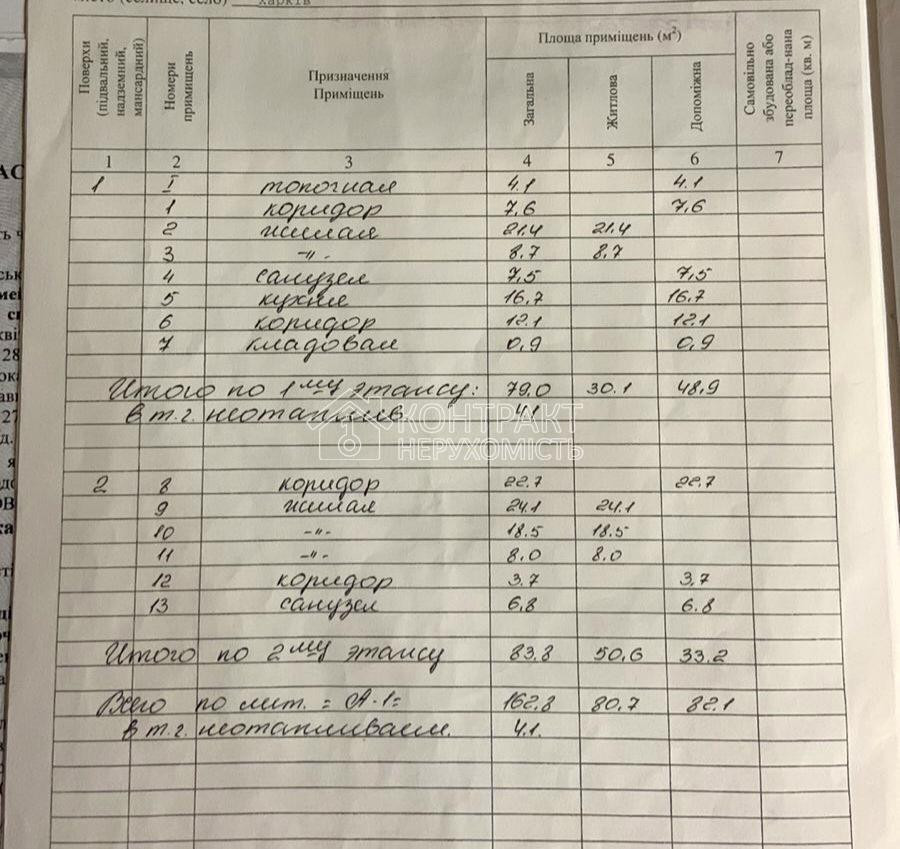 місто (селище, село) харків
Поверхи (підвальний, надземний, мансардний)
Номери примищень
Призначення Приміщень
Площа приміщень (м²)
Загальна
Житлова
Допоміжна
Самовільно збудована або переоблад-нана площа (кв. м)
1 2 3 4 5 6 7
1 I топочная 4.1 4.1
1 коридор 7,6 7,6
2 жилая 21.4 21.4
3 -"- 8.7 8.7
4 санузел 7,5 7,5
5 кухня 16,7 16,7
6 коридор 12.1 12.1
7 кладовая 0,9 0,9
Итого по 1му этажу: 79.0 30.1 48,9
в т.ч. неотаплив. 4.1
КОНТРАКТ
НЕРУХОМІСТЬ
2 8 коридор 22.7 22,7
9 жилая 24.1 24.1
10 -"- 18.5 18.5
11 -"- 8.0 8.0
12 коридор 3.7 3.7
13 санузел 6,8 6.8
Итого по 2му этажу 83,8 50,6 33.2
Всего по лит. = А-1= 162,8 80,7 82.1
в т.ч. неотапливаем. 4.1.